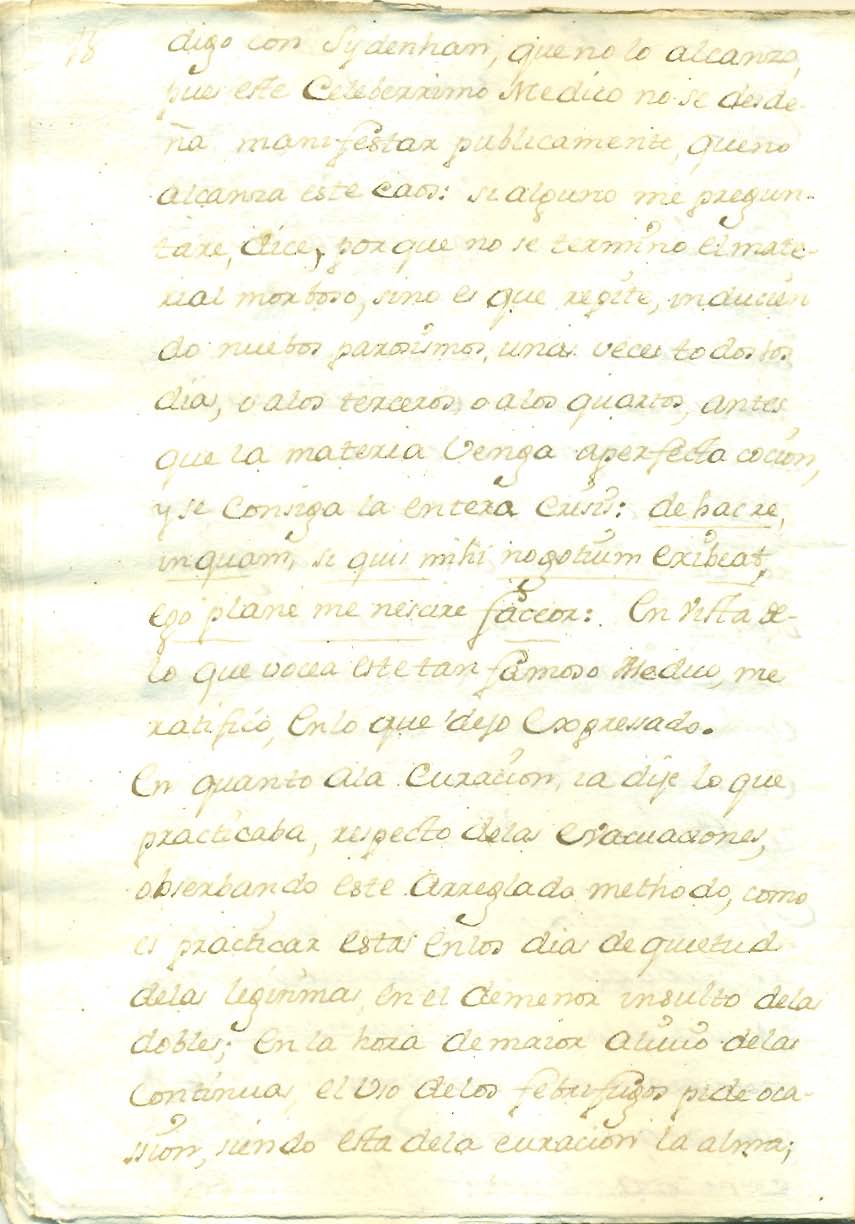 18
digo con Sydenhan, que no lo alcanzo,
pues este Celeberrimo Medico no se desde-
ña manifestar publicamente, que no
alcanza este caos: si alguno me pregun-
tare, dice, porque no se termino el mate-
rial morboso, sino es que repite, inducien
do nuebos parosismos, unas veces todos los
dias, o a los terceros, o a los quartos, antes
que la materia Venga a perfecta coccion,
y se Consiga la entera Crisis: de hac re,
inquam, si quis mihi nogotium Exibeat,
ego plane me nescire fateor: En vista de-
lo que vocea este tan famoso Medico, me
ratifico, en lo que dejo Expressado.
En quanto a la Curacion, ia dije lo que
practicaba, respecto de las Evacuaciones,
obserbando este Arreglado methodo, como
es practicar estas En los dias de quietud
de las legitimas, en el de menor insulto de las
dobles; En la hora de maior alivio de las
Continuas, el Uso de los febrifugos pide oca-
ssion, siendo esta de la curacion la alma;